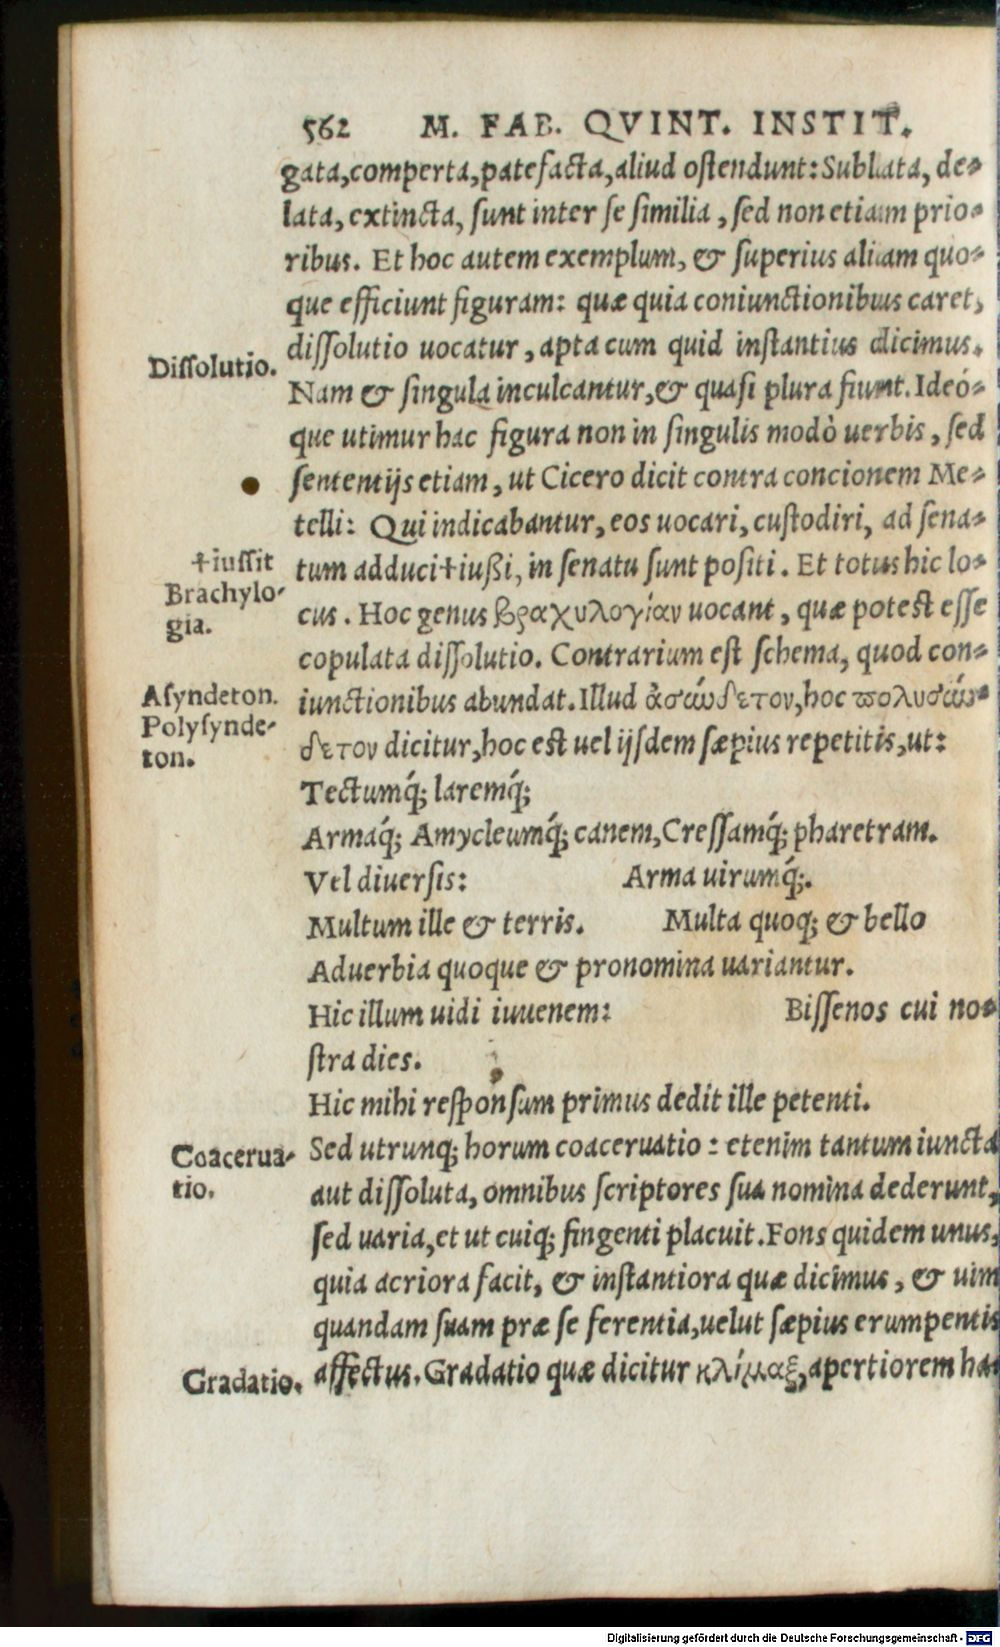 562 M. FAB. QVINT. INSTIT.
gata,comperta,patefacta,aliud ostendunt: Sublata, de-
lata, extincta, sunt inter se similia, sed non etiam prio-
ribus. Et hoc autem exemplum, & superius aliam quo-
que efficiunt figuram: quæ quia coniunctionibus caret,
Dissolutio.
dissolutio uocatur, apta cum quid instantius dicimus.
Nam & singula inculcantur,& quasi plura fiunt. Ideó-
que utimur hac figura non in singulis modò uerbis, sed
sententijs etiam, ut Cicero dicit contra concionem Me-
telli: Qui indicabantur, eos uocari, custodiri, ad sena-
†iussit
tum adduci†iußi, in senatu sunt positi. Et totus hic lo-
Brachylo-
gia.
cus. Hoc genus βραχυλογίαν uocant, quæ potest esse
copulata dissolutio. Contrarium est schema, quod con-
Asyndeton.
iunctionibus abundat. Illud ἀσύνδετον, hoc πολυσύν-
Polysynde-
ton.
δετον dicitur, hoc est uel ijsdem sæpius repetitis, ut:
Tectumq́; laremq́;
Armaq́; Amycleumq́; canem, Cressamq́; pharetram.
Vel diuersis: Arma uirumq́;.
Multum ille & terris. Multa quoq; & bello
Aduerbia quoque & pronomina uariantur.
Hic illum uidi iuuenem: Bissenos cui no-
stra dies.
Hic mihi responsum primus dedit ille petenti.
Coacerua-
tio.
Sed utrunq; horum coaceruatio: etenim tantum iuncta
aut dissoluta, omnibus scriptores sua nomina dederunt,
sed uaria, et ut cuiq; fingenti placuit. Fons quidem unus,
quia acriora facit, & instantiora quæ dicimus, & uim
quandam suam præ se ferentia, uelut sæpius erumpentis
Gradatio.
affectus. Gradatio quæ dicitur κλίμαξ, apertiorem ha-
Digitalisierung gefördert durch die Deutsche Forschungsgemeinschaft - DFG